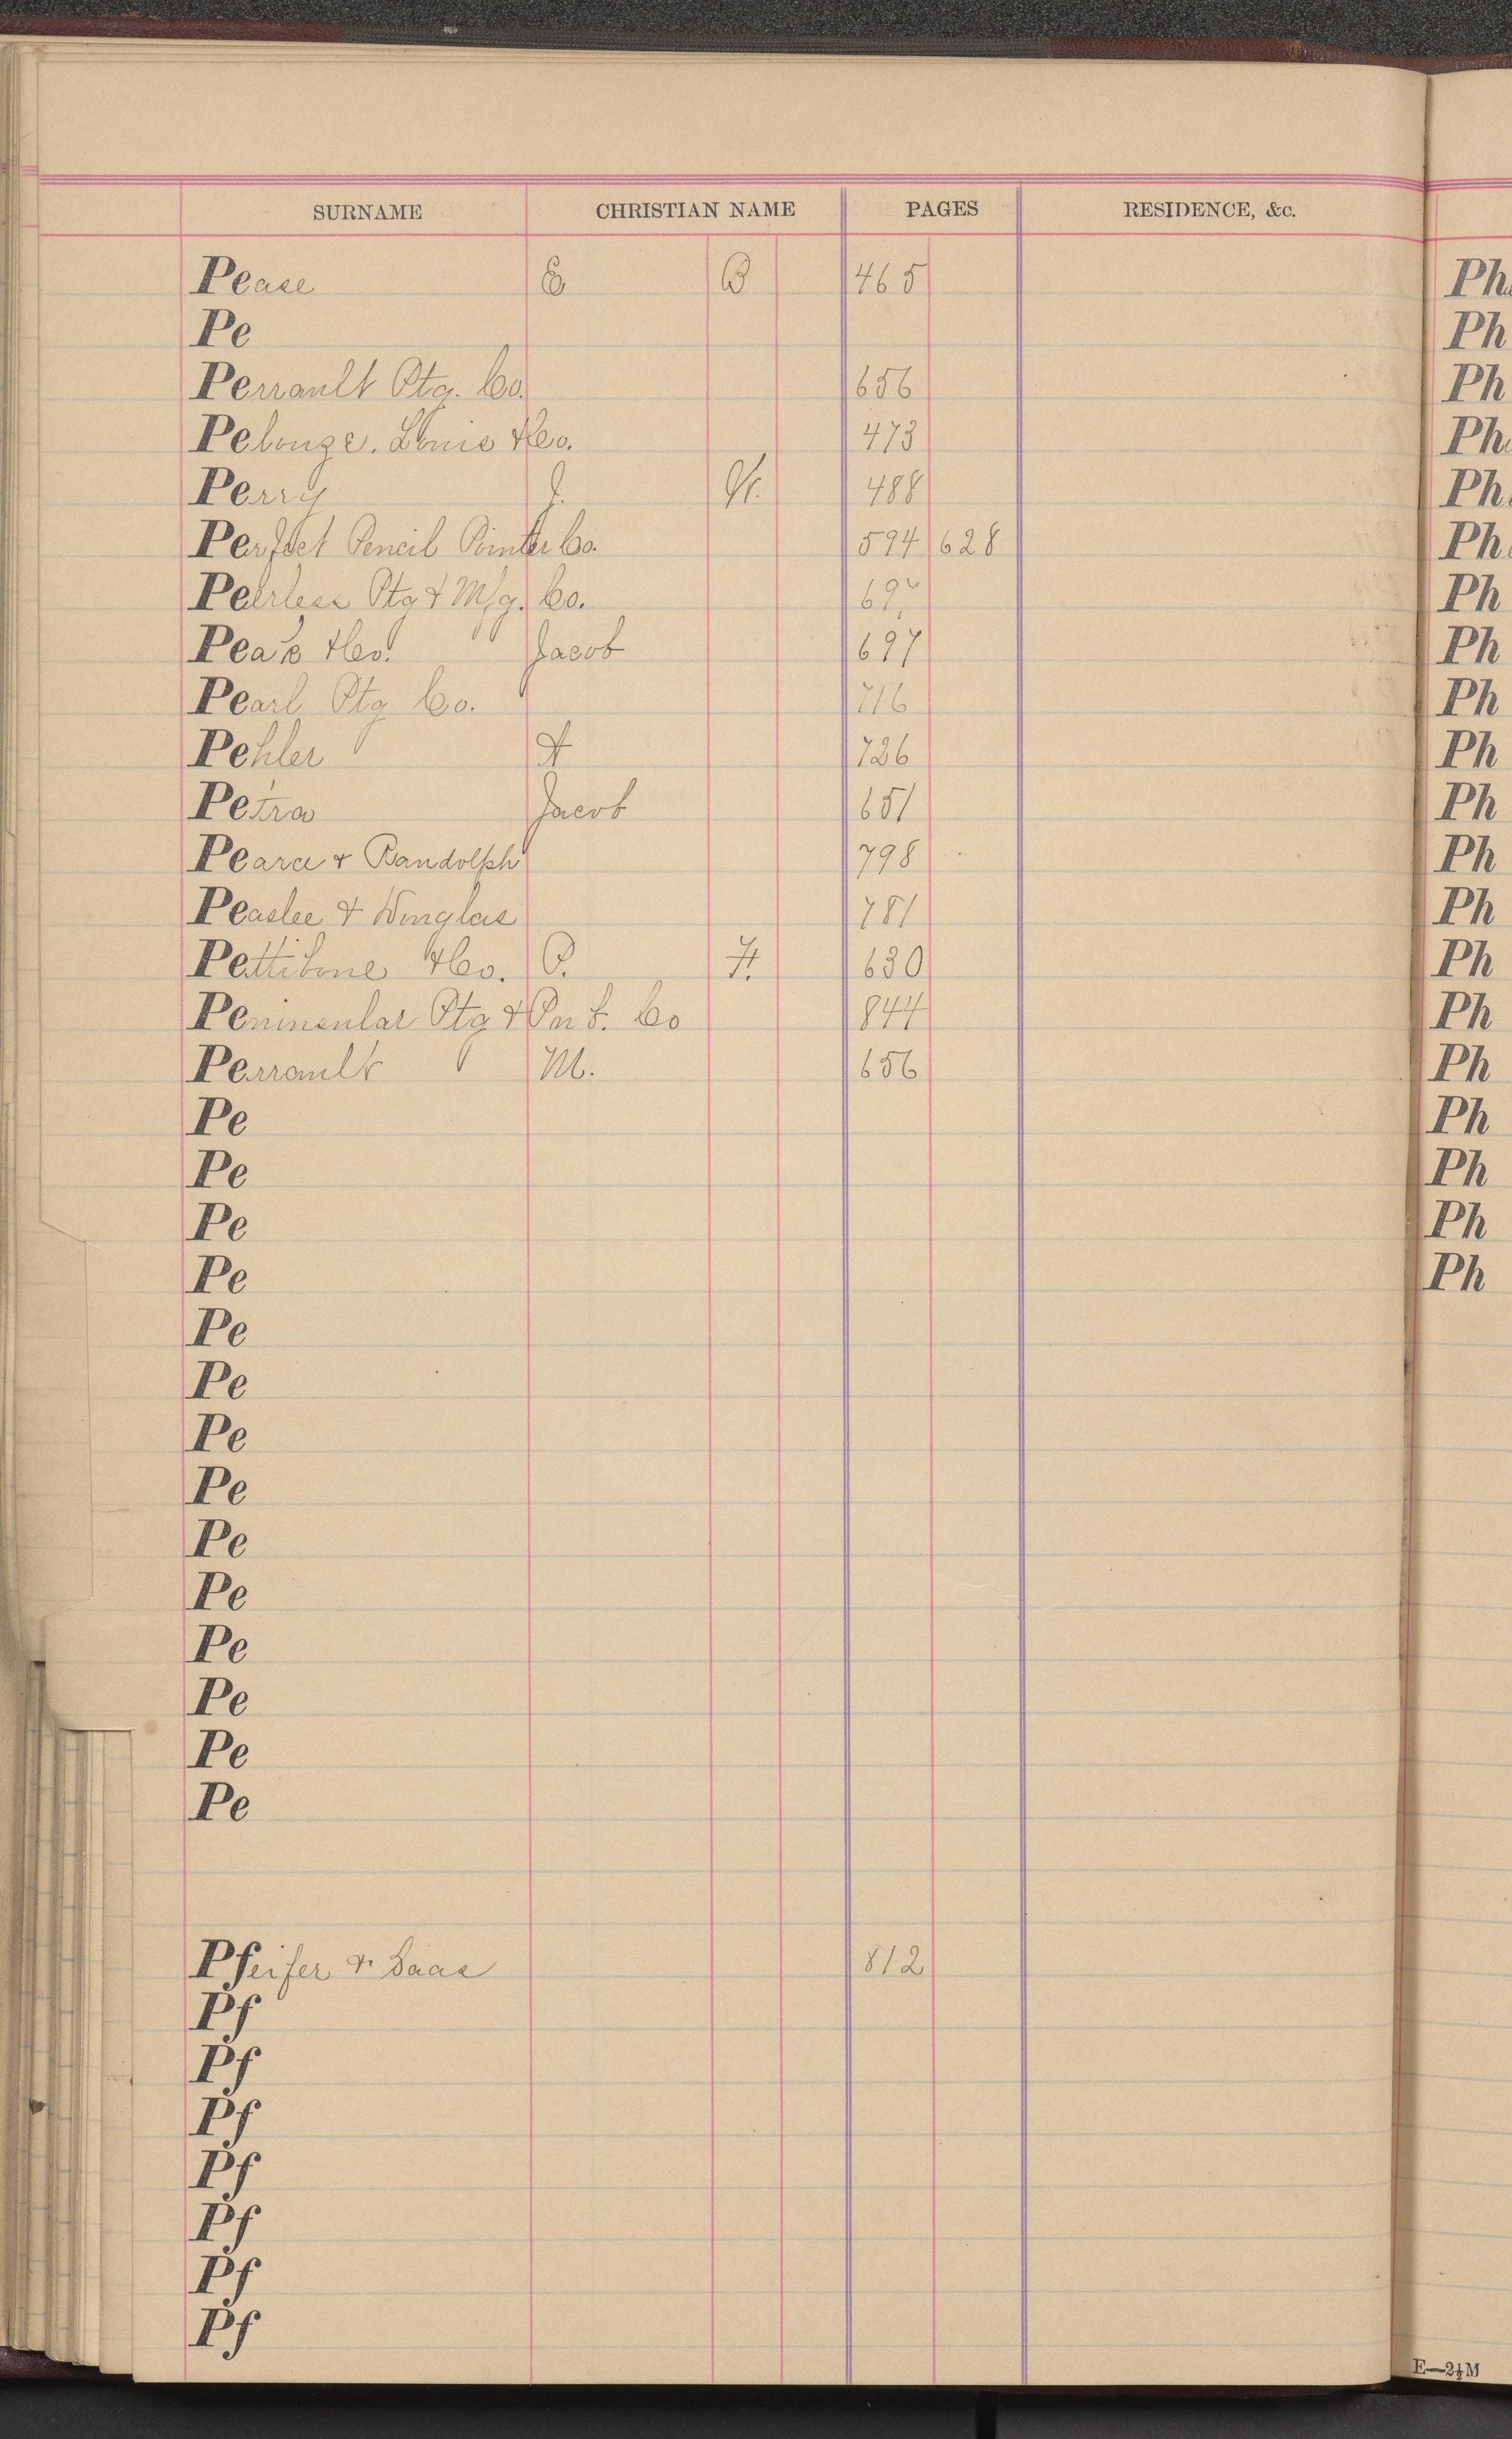 SURNAME CHRISTIAN NAME PAGES RESIDENCE, &c.
Pease E B 465
Pe
Perrault Ptg. Co. 656
Pelouze. Louis & Co. 473
Perry J. W. 488
Perfect Pencil Pointer Co. 594 628
Peerless Ptg & Mfg. Co.
Peak & Co. Jacob 697
Pearl Ptg Co. 716
Pehler A 726
Petra Jacob 651
Pearce & Randolph 798
Peaslee & Douglas 781
Pettibone & Co. P. F. 630
Peninsular Ptg & Pub. Co 844
Perrault M. 656
Pe
Pe
Pe
Pe
Pe
Pe
Pe
Pe
Pe
Pe
Pe
Pe
Pe
Pe
Pfeifer & Saas 812
Pf
Pf
Pf
Pf
Pf
Pf
Pf
Ph
Ph
Ph
Ph
Ph
Ph
Ph
Ph
Ph
Ph
Ph
Ph
Ph
Ph
Ph
Ph
Ph
Ph
Ph
Ph
E—2½M